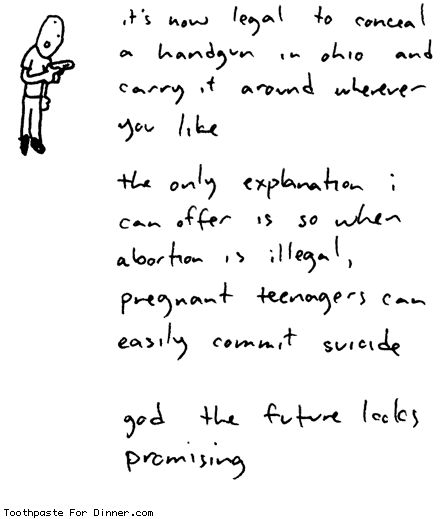 it's now legal to conceal
a handgun in ohio and
carry it around wherever
you like
the only explanation i
can offer is so when
abortion is illegal,
pregnant teenagers can
easily commit suicide
god the future looks
promising
Toothpaste For Dinner.com